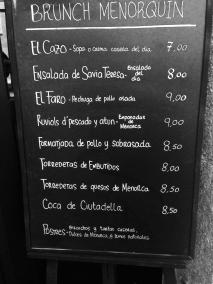 BRUNCH MENORQUIN
EL CAZO - Sopa o crema casera del día. 7,00
Ensalada de Savia Teresa - Ensalada del día 8,00
EL FARO - Pechuga de pollo asada 9,00
Ruviols d'pescado y atún - Empanadas de Menorca 9,00
Formatjada de pollo y sobrasada 8.50
TORREDETAS DE EMBUTIDOS 8.00
TORREDETAS de quesos de Menorca 8,50
Coca de Ciutadella 8,50
Postres - Bizcochos y tartas caseras,
Dulces de Menorca